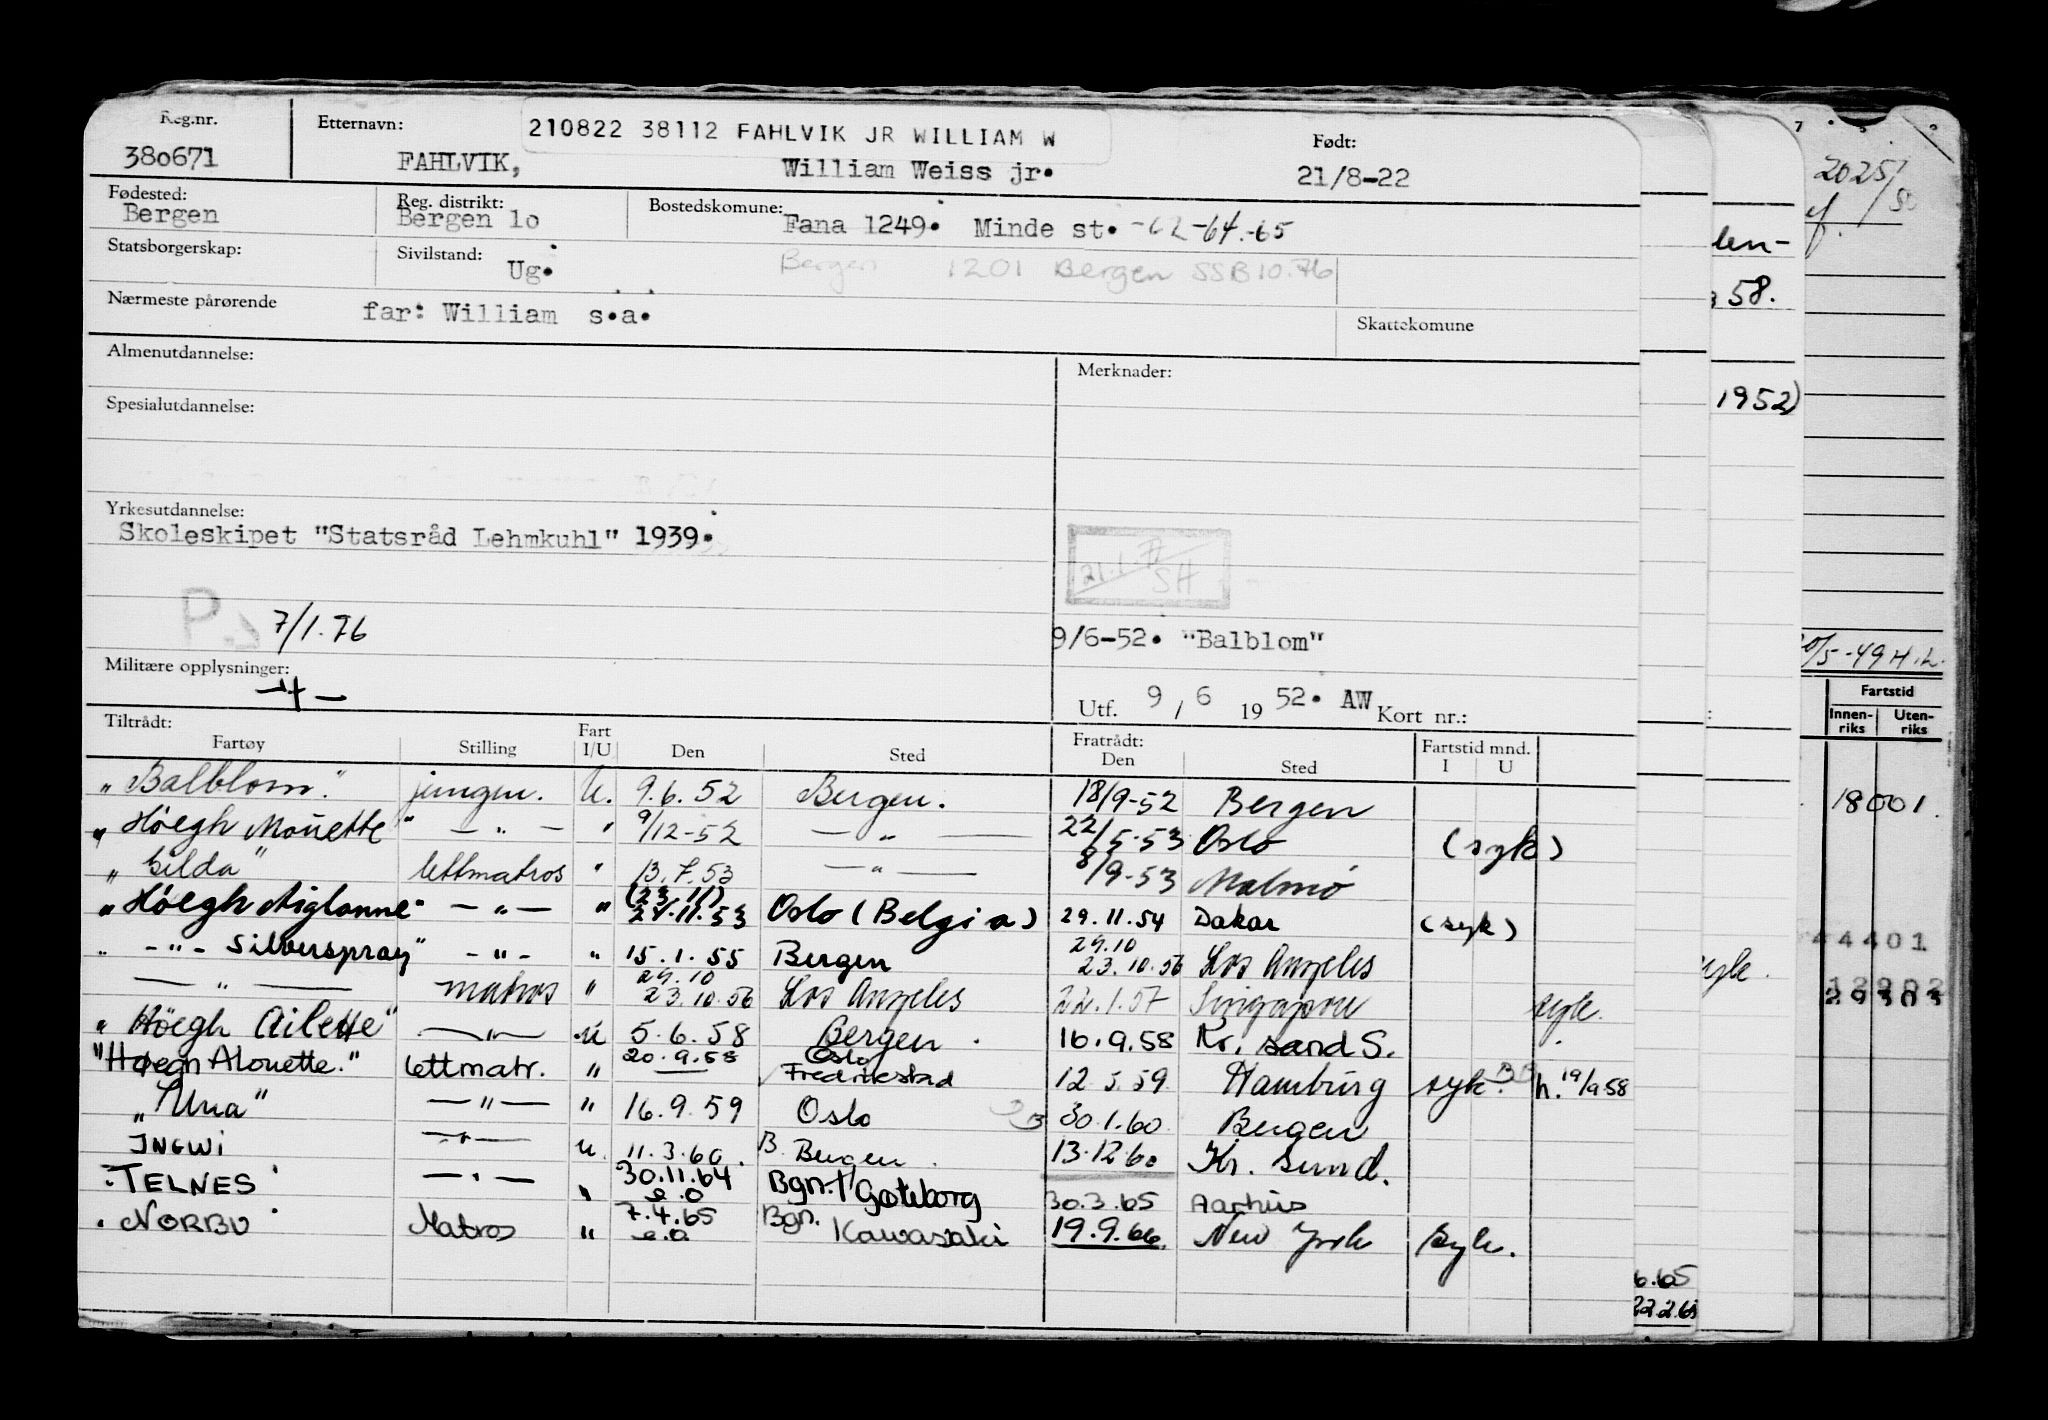 Reg.nr. Etternavn: 210822 38112 FAHLVIK JR WILLIAM W Født:
380671 FAHLVIK, William Weiss jr. 21/8-22
Fødested: Reg. distrikt: Bostedskomune:
Bergen Bergen 10 Fana 1249. Minde st. -62-64-65
Statsborgerskap: Sivilstand: Ug. Bergen 1201 Bergen SSB 10.76
Nærmeste pårørende far: William s.a. Skattekomune
Almenutdannelse: Merknader:
Spesialutdannelse:
Yrkesutdannelse:
Skoleskipet "Statsråd Lehmkuhl" 1939.
21.1. SH
7/1.76
9/6-52. "Balblom"
Militære opplysninger:
Utf. 9 / 6 19 52. AW Kort nr.:
Tiltrådt: Fratrådt:
Fartøy Stilling Fart I/U Den Sted Den Sted Fartstid mnd. I U
"Balblom" jungm. U. 9.6.52 Bergen. 18/9-52 Bergen
"Høegh Mouette" - " - " 9/12-52 - " - 22/5-53 Oslo (syk)
"Gilda" lettmatros " 13.7.53 - " - 8/9-53 Malmö
(23.11)
"Høegh Aiglonne" - " - " 24.11.53 Oslo (Belgia) 29.11.54 Dakar (syk)
" - " - Silverspray" - " - " 15.1.55 Bergen 24.10 23.10.56 Los Angeles
- " - matros " 24.10 23.10.56 Los Angeles 22.1.57 Singapore syk.
"Høegh Ailette" - " - U 5.6.58 Bergen. 16.9.58 Kr. sand S.
"Høegh Alouette." lettmatr. " 20.9.58 Oslo Fredrikstad 12.5.59 Hamburg syk. h. 19/9 58
"Una" - " - " 16.9.59 Oslo 30.1.60 Bergen
INGWI - " - U. 11.3.60. B. Bergen. 13.12.60 Kr. sund.
"TELNES" - " - " 30.11.64 e.o Bgn. / Gøteborg 30.3.65 Aarhus
"NORBU" Matros " 7.4.65 e.o Bgn. Kawasaki 19.9.66. New York Syk.
len-
58.
1952)
syk.
6.65
22.2.65
2025/50
ef.
/5-49 H.L.
Fartstid
Innen-riks Uten-riks
18001.
44401